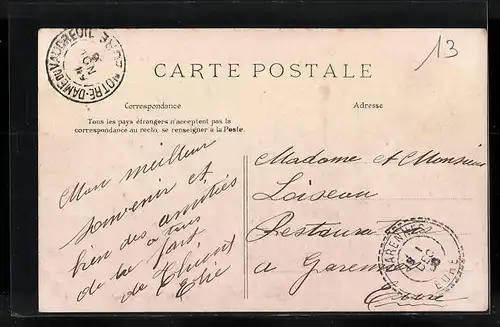 NOTRE-DAME-DU-VAUDREUIL EURE
13
CARTE POSTALE
Correspondance
Adresse
Tous les pays étrangers n'acceptent pas la
correspondance au recto, se renseigner à la Poste.
Mon meilleur
souvenir et
bien des amitiés
à tous
de la part
de
Madame et Monsieur
Loiseau
Restaurateurs
a Garennes
Eure
GARENNES
1
EURE